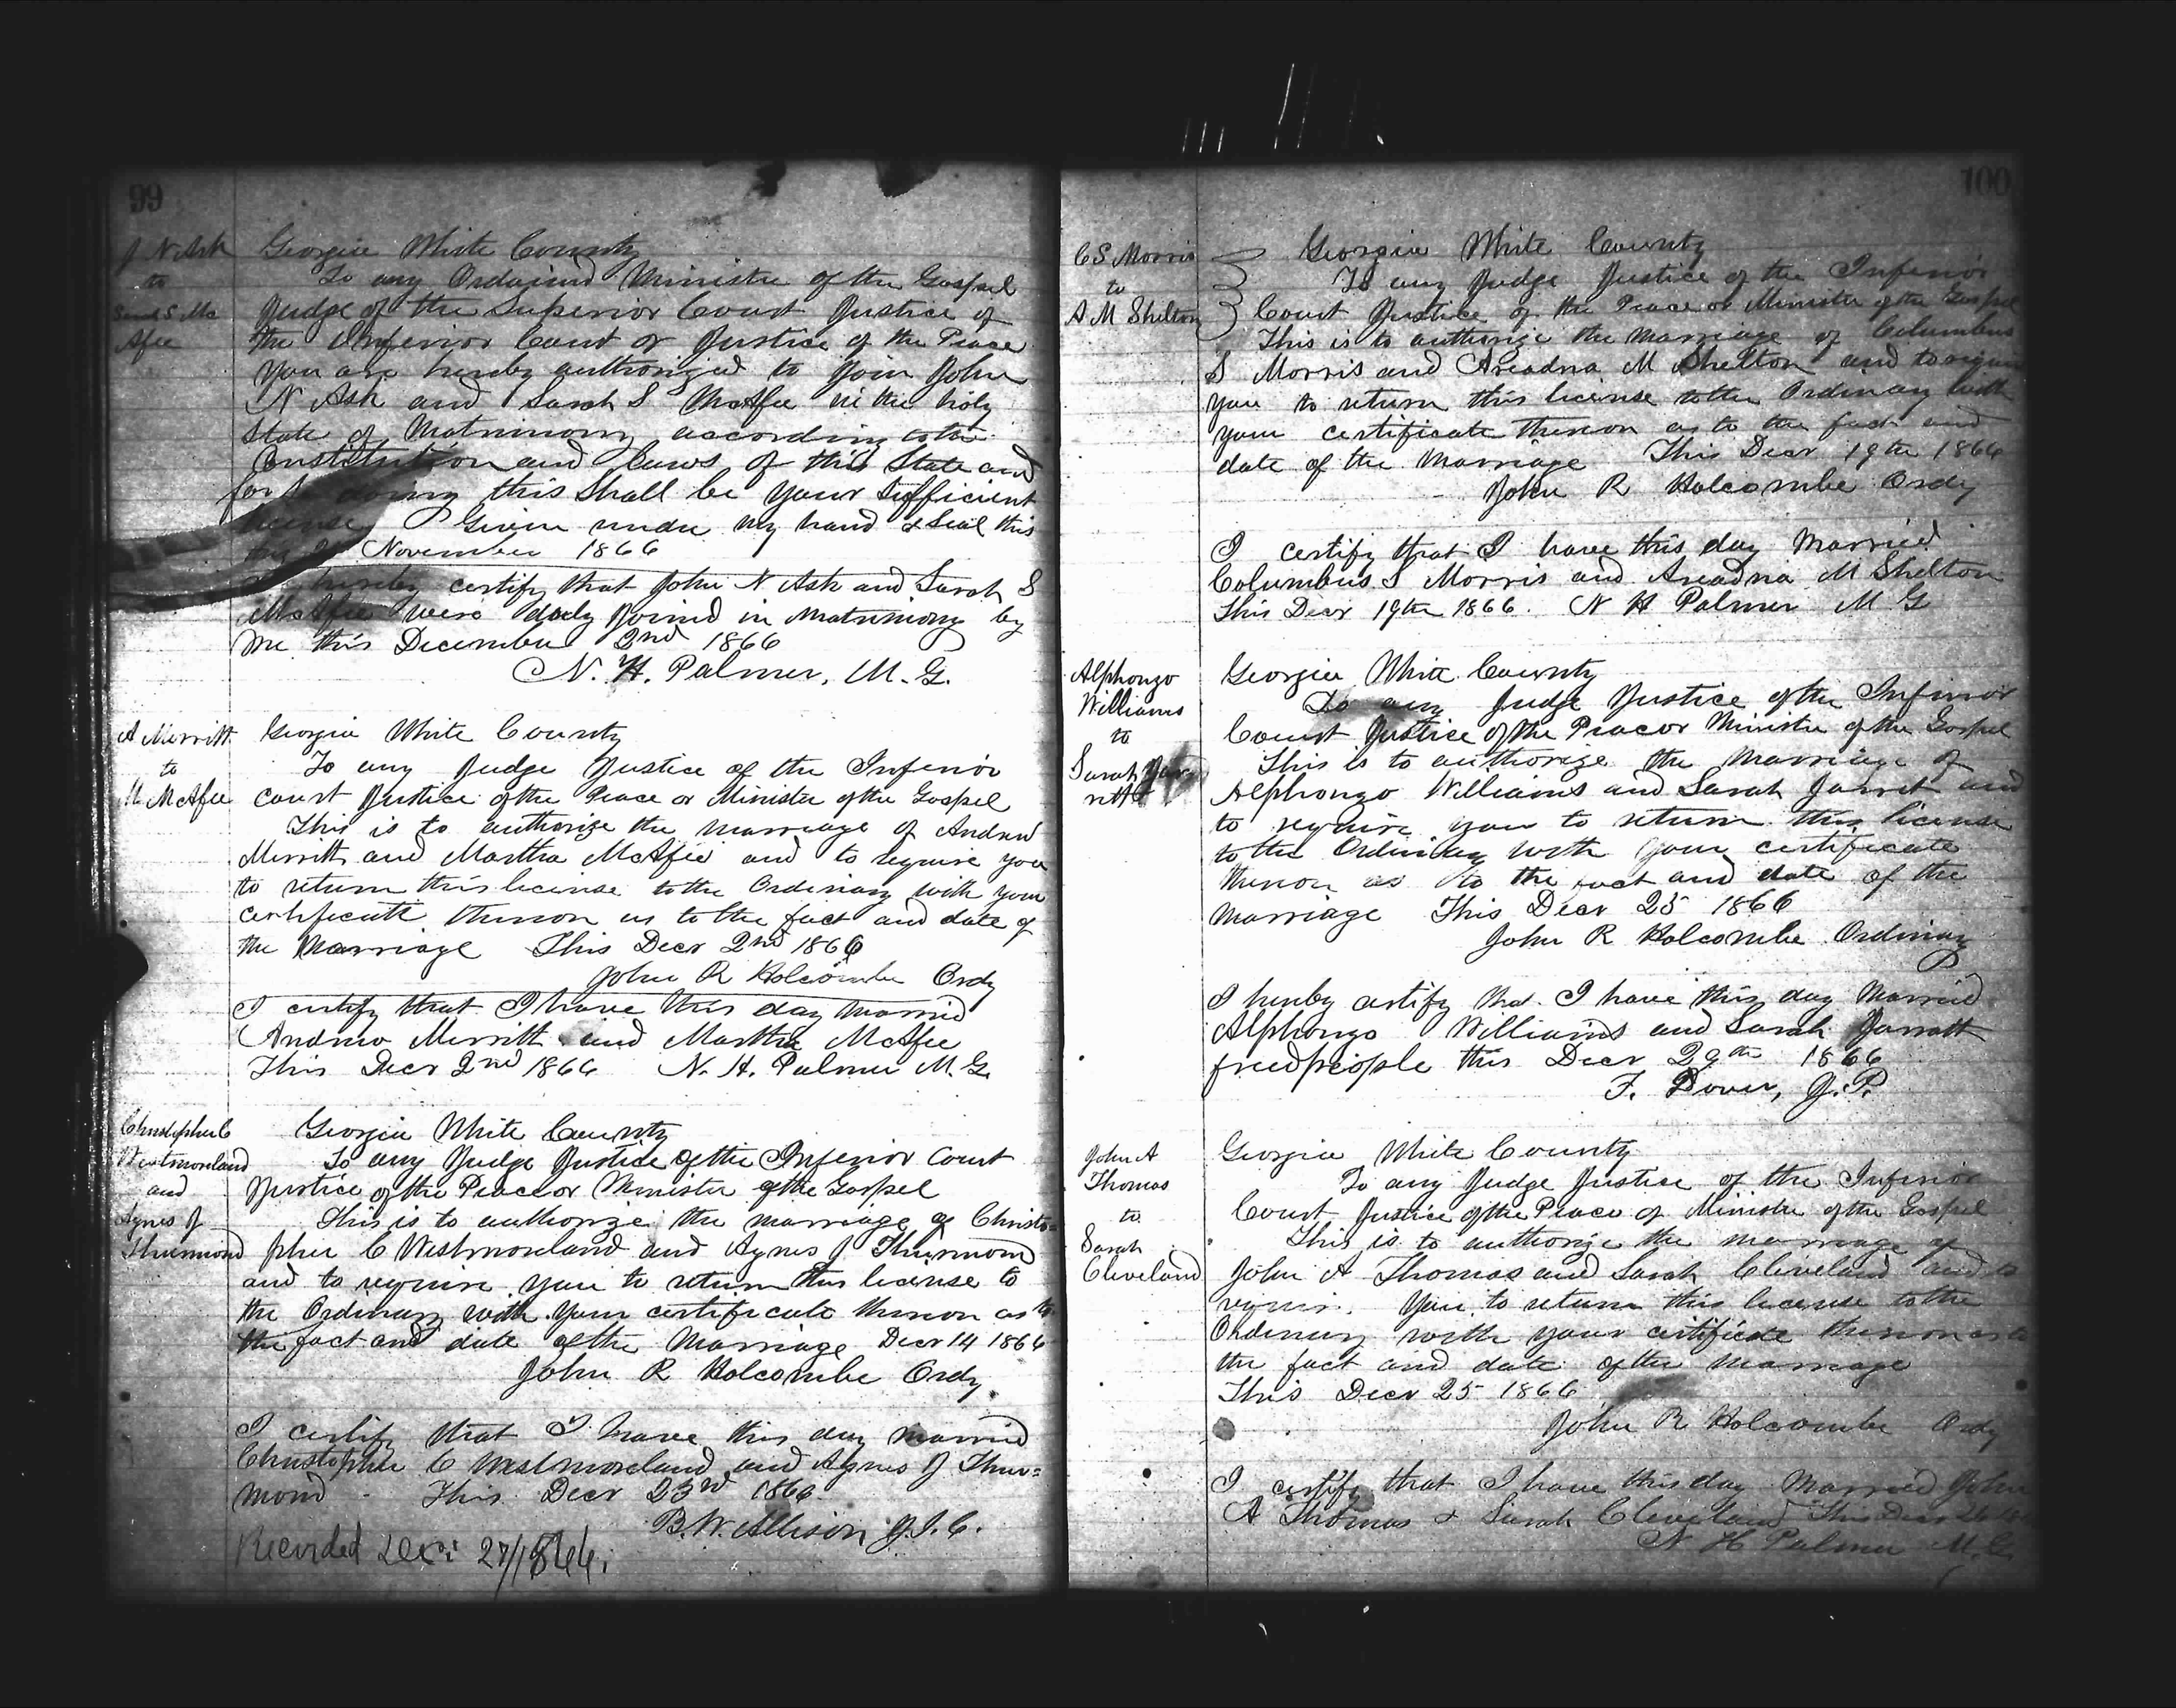 99
J N Ash
to
Sarah S Mc
Afee
Georgia White County
To any Ordained Minister of the Gospel
Judge of the Superior Court Justice of
the Inferior Court or Justice of the Peace
You are hereby authorized to join John
N Ash and Sarah S McAfee in the holy
State of Matrimony according to the
Constitution and Laws of this State and
for doing this Shall be your Sufficient
license Given under my hand & Seal this
November 1866
hereby certify that John N Ash and Sarah S
McAfee were duly joined in matrimony by
me this December 2nd 1866
N. H. Palmer, M. G.
A Merritt
to
M McAfee
Georgia White County
To any Judge Justice of the Inferior
court Justice of the Peace or Minister of the Gospel
This is to authorize the marriage of Andrew
Merritt and Martha McAfee and to require you
to return this license to the Ordinary with your
certificate thereon as to the fact and date of
the Marriage This Decr 2nd 1866
John R Holcombe Ordy
I certify that I have this day married
Andrew Merritt and Martha McAfee
This Decr 2nd 1866 N. H. Palmer M. G.
Christopher C
Westmoreland
and
Agnes J
Thurmond
Georgia White County
To any Judge Justice of the Inferior Court
Justice of the Peace or Minister of the Gospel
This is to authorize the marriage of Christo=
pher C Westmoreland and Agnes J Thurmond
and to require you to return this license to
the Ordinary with your certificate thereon as to
the fact and date of the Marriage Decr 14 1866
John R Holcombe Ordy.
I certify that I have this day married
Christopher C Westmoreland and Agnes J Thur=
mond - This Decr 23rd 1866
B. W. Allison J. I. C.
Recorded Dec: 27/1866.
100
C S Morris
to
A M Shelton
Georgia White County
To any Judge Justice of the Inferior
Court Justice of the Peace or Minister of the Gospel
This is to authorize the Marriage of Columbus
S Morris and Areadna M Shelton and to require
you to return this license to the Ordinary with
your certificate thereon as to the fact and
date of the Marriage This Decr 19th 1866
John R Holcombe Ordy
I certify that I have this day Married
Columbus S Morris and Areadna M Shelton
This Decr 19th 1866. N H Palmer M G
Alphonzo
Williams
to
Sarah Jar
rett
Georgia White County
To any Judge Justice of the Inferior
Court Justice of the Peace or Minister of the Gospel
This is to authorize the Marriage of
Alphonzo Williams and Sarah Jarret and
to require you to return this license
to the Ordinary with your certificate
thereon as to the fact and date of the
marriage This Decr 25 1866
John R Holcombe Ordinary
I hereby certify that I have this day Married
Alphonzo Williams and Sarah Jarratt
freedpeople this Decr 29th 1866
F. Dover, J. P.
John A
Thomas
to
Sarah
Cleveland
Georgia White County
To any Judge Justice of the Inferior
Court Justice of the Peace of Minister of the Gospel
This is to authorize the marriage of
John A Thomas and Sarah Cleveland and to
require you to return this license to the
Ordinary with your certificate thereon as to
the fact and date of the marriage
This Decr 25 1866
John R Holcombe Ordy
I certify that I have this day Married John
A Thomas & Sarah Cleveland This Decr 26
N H Palmer M. G.